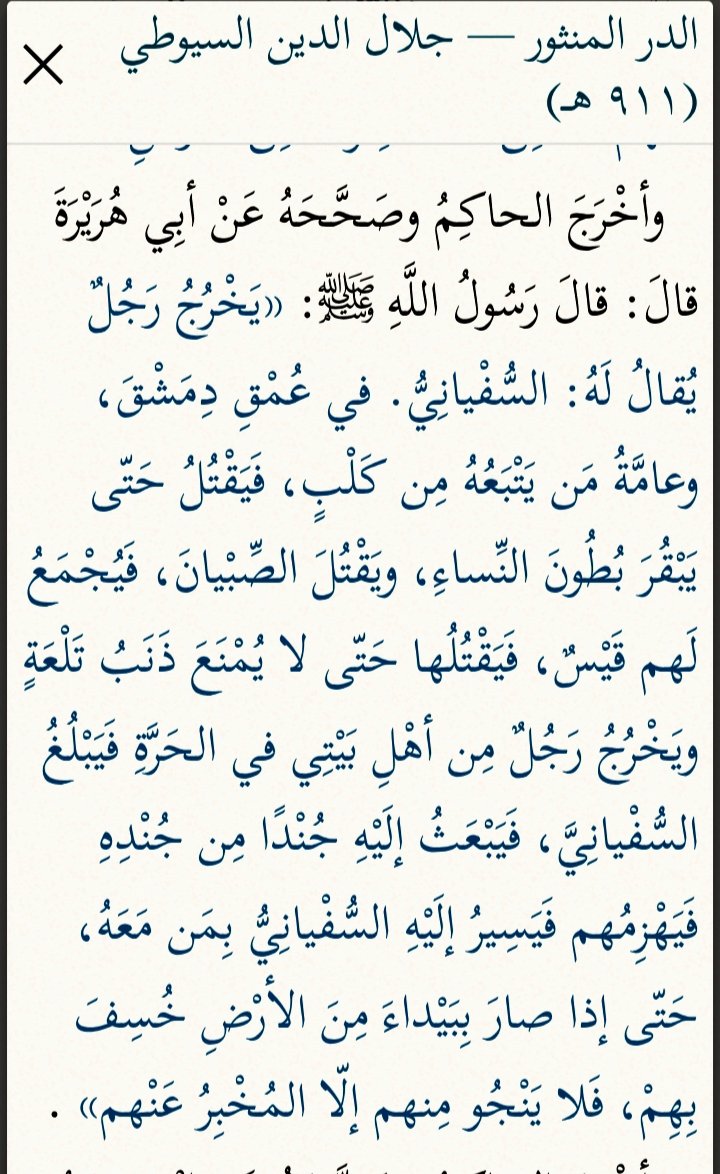 الدر المنثور — جلال الدين السيوطي
(٩١١ هـ)
وأخْرَجَ الحاكِمُ وصَحَّحَهُ عَنْ أبِي هُرَيْرَةَ
قالَ: قالَ رَسُولُ اللَّهِ ﷺ: «يَخْرُجُ رَجُلٌ
يُقالُ لَهُ: السُّفْيانِيُّ. في عُمْقِ دِمَشْقَ،
وعامَّةُ مَن يَتْبَعُهُ مِن كَلْبٍ، فَيَقْتُلُ حَتّى
يَبْقُرَ بُطُونَ النِّساءِ، ويَقْتُلَ الصِّبْيانَ، فَيُجْمَعُ
لَهم قَيْسٌ، فَيَقْتُلُها حَتّى لا يُمْنَعَ ذَنَبُ تَلْعَةٍ
ويَخْرُجُ رَجُلٌ مِن أهْلِ بَيْتِي في الحَرَّةِ فَيَبْلُغُ
السُّفْيانِيَّ، فَيَبْعَثُ إلَيْهِ جُنْدًا مِن جُنْدِهِ
فَيَهْزِمُهم فَيَسِيرُ إلَيْهِ السُّفْيانِيُّ بِمَن مَعَهُ،
حَتّى إذا صارَ بِبَيْداءَ مِنَ الأرْضِ خُسِفَ
بِهِمْ، فَلا يَنْجُو مِنهم إلّا المُخْبِرُ عَنْهم» .